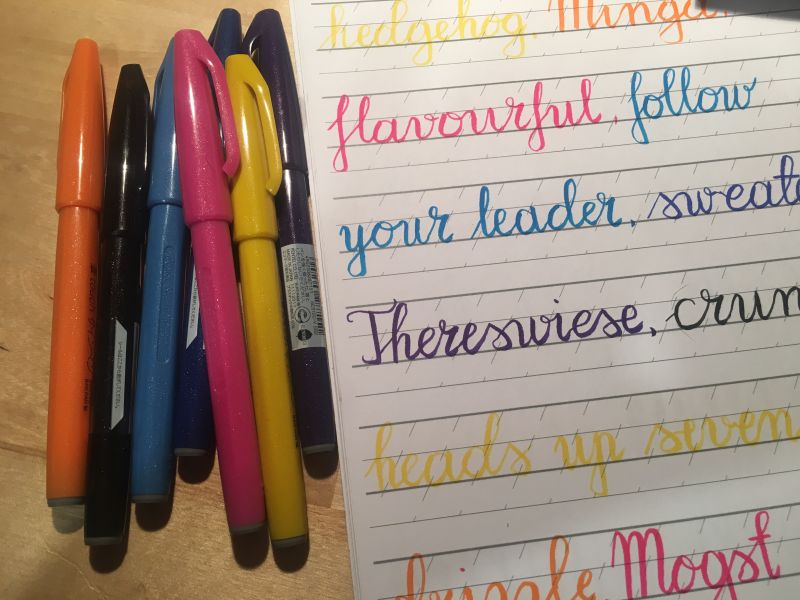 hedgehog, Minga,
flavourful, follow
your leader, sweate
Thereswiese, crun
heads up seven
drizzle, Mogst